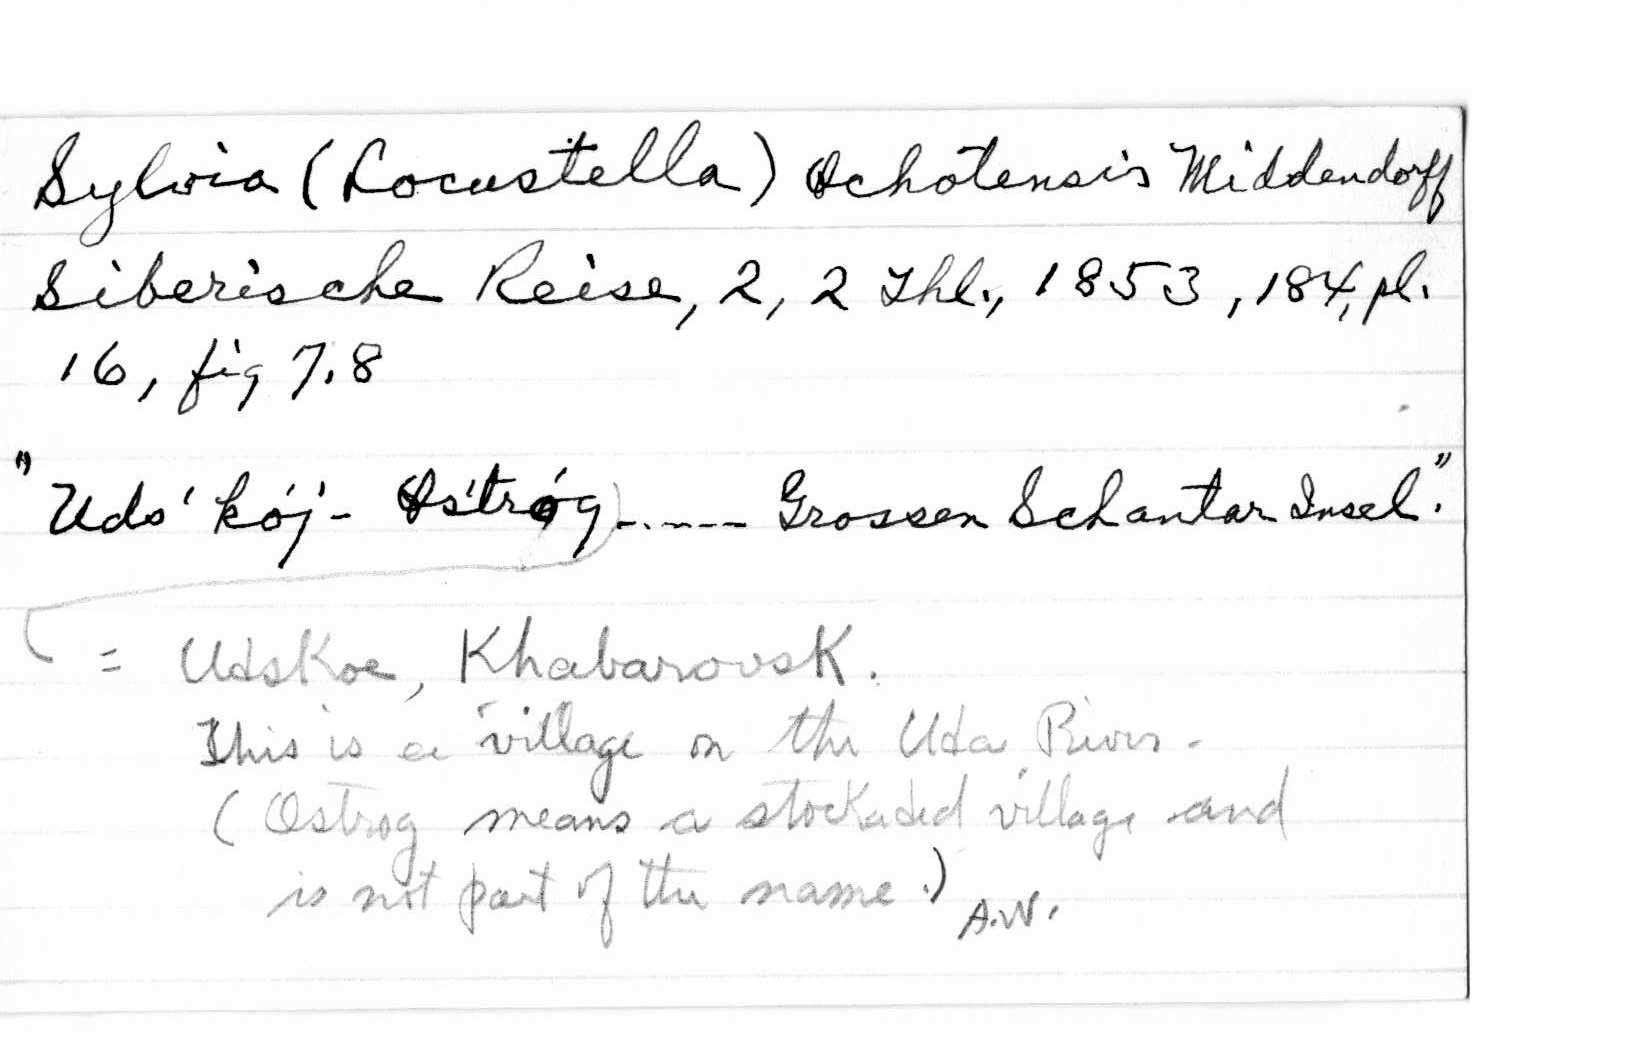 Sylvia (Locustella) Ochotensis Middendorff
Siberische Reise, 2, 2 Thl., 1853, 184, pl.
16, fig 7.8
"Uds'kój- Óstróg ...... Grossen Schantar Insel."
= Udskoe, Khabarovsk.
This is a village on the Uda River.
(Ostrog means a stockaded village and
is not part of the name.) A.W.